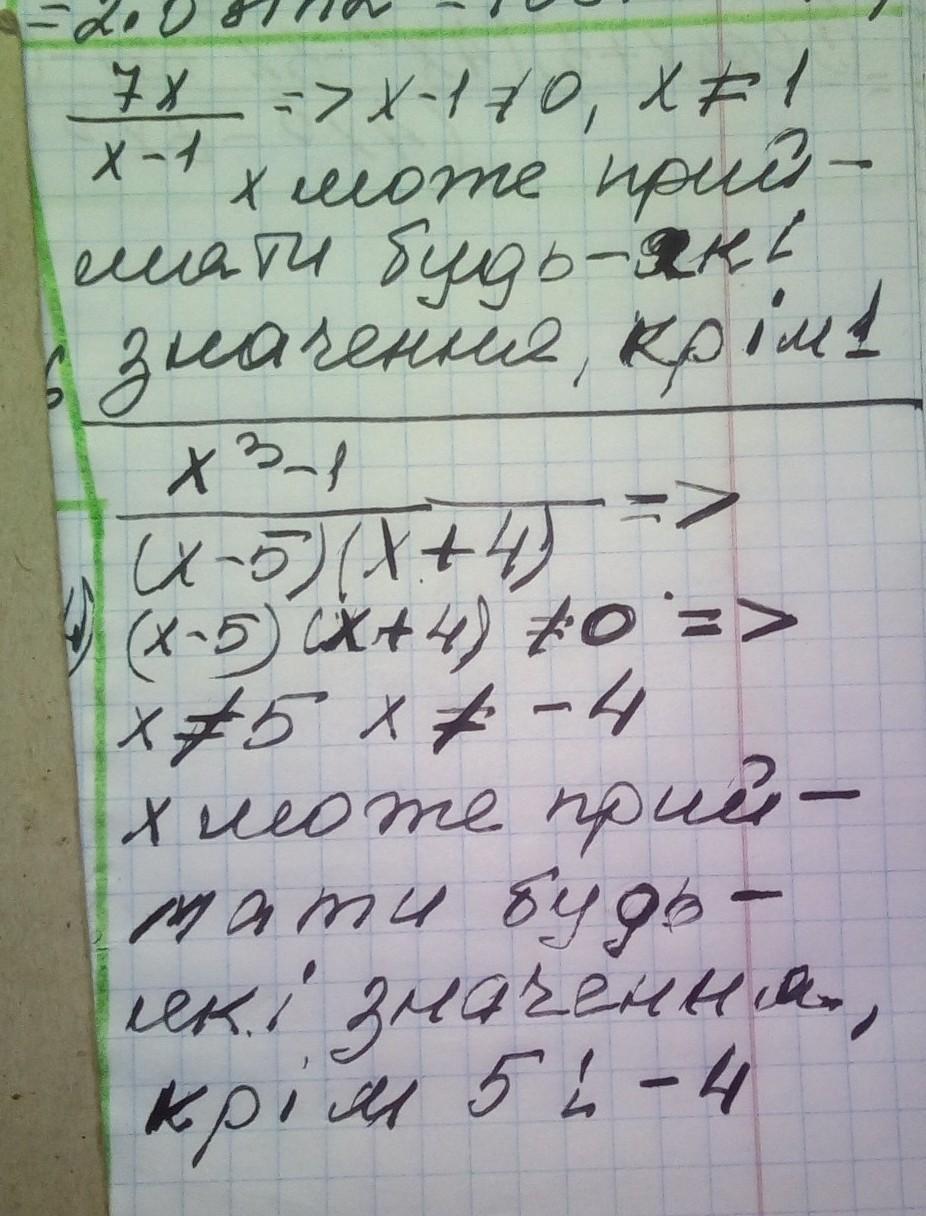 7x/(x-1) => x-1≠0, x≠1
x може прий-
мати будь-які
значення, крім 1
x³-1/((x-5)(x+4)) =>
(x-5)(x+4)≠0 =>
x≠5 x≠-4
x може прий-
мати будь-
які значення,
крім 5 і -4